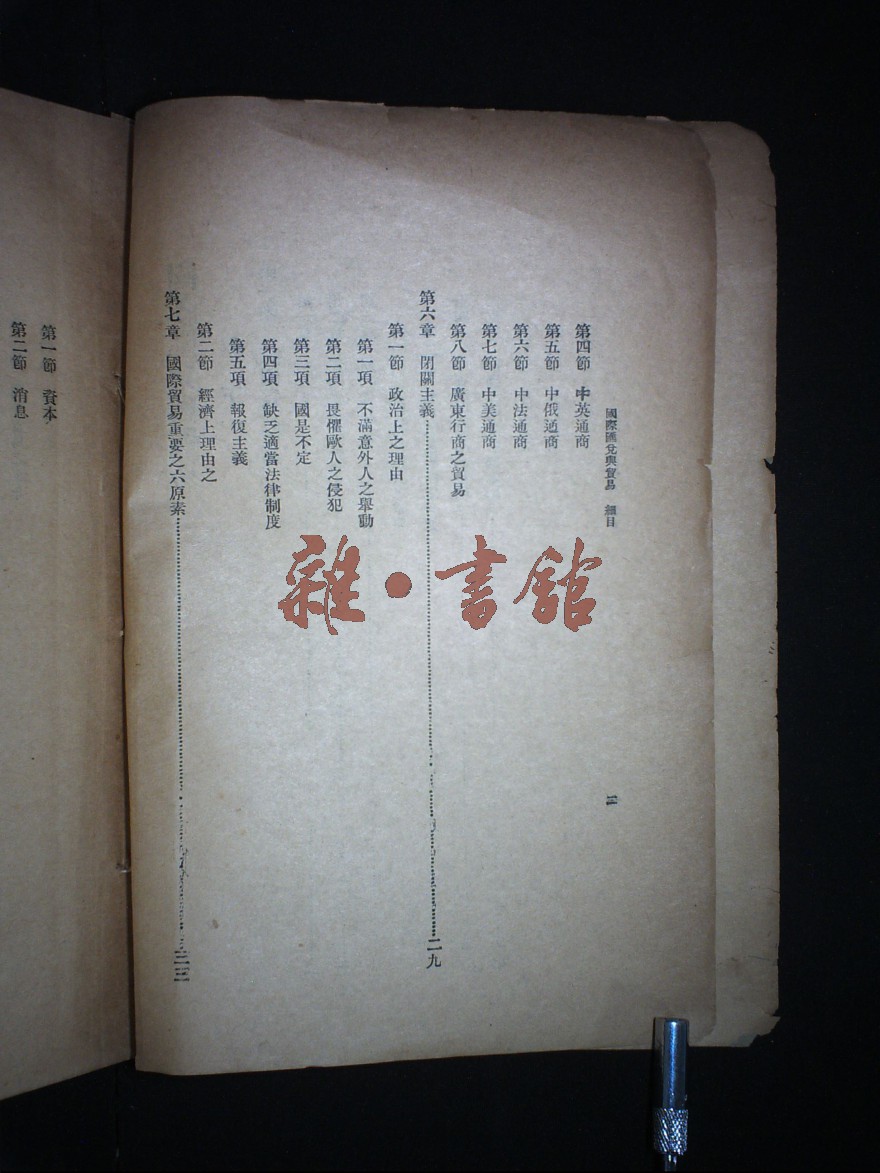 國際匯兌與貿易 細目
二
第四節 中英通商
第五節 中俄通商
第六節 中法通商
第七節 中美通商
第八節 廣東行商之貿易
第六章 閉關主義……二九
第一節 政治上之理由
第一項 不滿意外人之舉動
第二項 畏懼歐人之侵犯
第三項 國是不定
第四項 缺乏適當法律制度
第五項 報復主義
第二節 經濟上理由之
第七章 國際貿易重要之六原素……三二
第一節 資本
第二節 消息
雜·書館